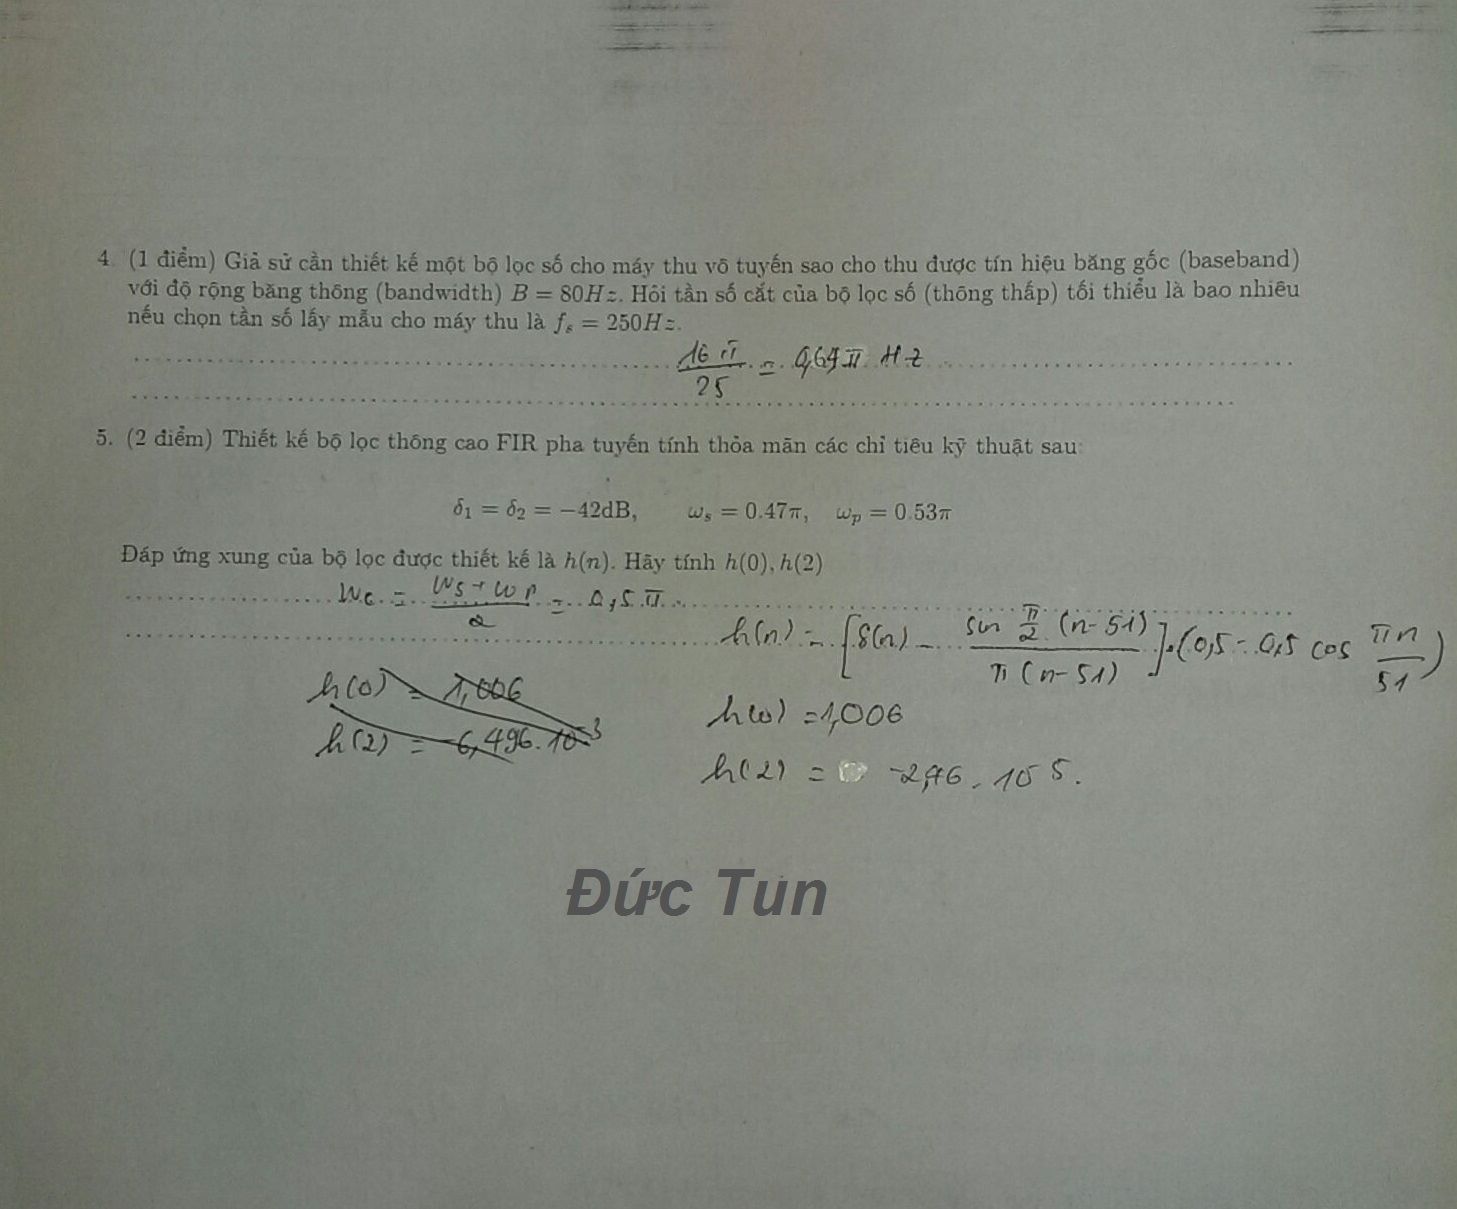 4. (1 điểm) Giả sử cần thiết kế một bộ lọc số cho máy thu vô tuyến sao cho thu được tín hiệu băng gốc (baseband)
với độ rộng băng thông (bandwidth) B = 80Hz. Hỏi tần số cắt của bộ lọc số (thông thấp) tối thiểu là bao nhiêu
nếu chọn tần số lấy mẫu cho máy thu là fₛ = 250Hz.
16π/25 = 0,64π Hz
5. (2 điểm) Thiết kế bộ lọc thông cao FIR pha tuyến tính thỏa mãn các chỉ tiêu kỹ thuật sau:
δ₁ = δ₂ = −42dB, ωₛ = 0.47π, ωₚ = 0.53π
Đáp ứng xung của bộ lọc được thiết kế là h(n). Hãy tính h(0), h(2)
Wc = (Ws + Wp)/2 = 0,5π
h(n) = [δ(n) - sin π/2 (n-51) / π(n-51)] . (0,5 - 0,5 cos πn/51)
h(0) = 1,006
h(2) = -6,496.10⁻³
h(0) = 1,006
h(2) = -2,76.10⁻⁵.
Đức Tun